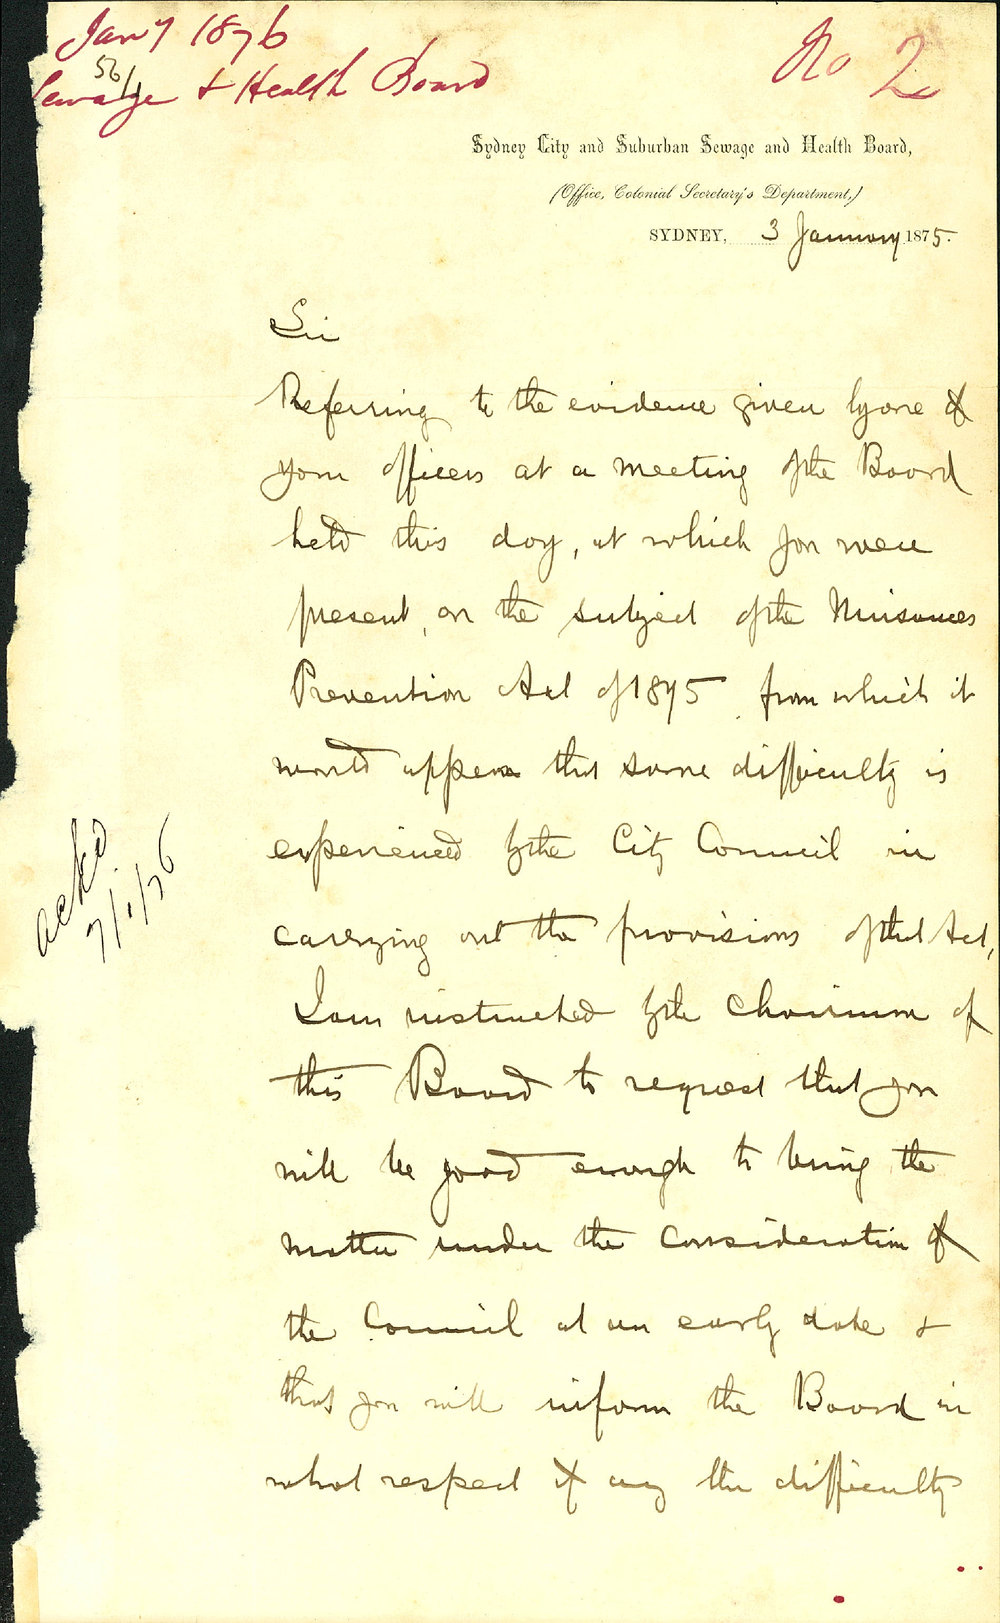 Jany 1876
Sewage & Health Board
56/1
No 2
Sydney City and Suburban Sewage and Health Board,
(Office, Colonial Secretary's Department,)
SYDNEY, 3 January 1875.
Sir
Referring to the evidence given by one of
your officers at a meeting of the Board
held this day, at which you were
present, on the subject of the Nuisances
Prevention Act of 1875 from which it
would appear that some difficulty is
experienced by the City Council in
carrying out the provisions of that Act,
I am instructed by the Chairman of
this Board to request that you
will be good enough to bring the
matter under the consideration of
the Council at an early date &
that you will inform the Board in
what respect if any the difficulty
ackd
7/1/76